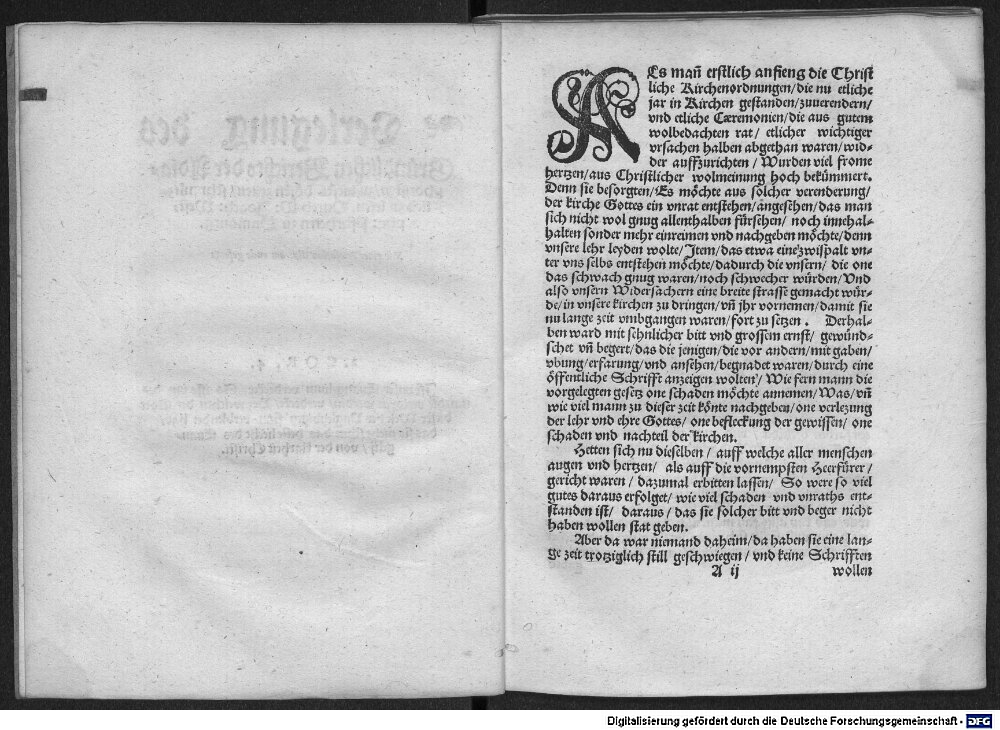 ALs mañ erstlich anfieng die Christ
liche Kirchenordnungen/die nu etliche
jar in Kirchen gestanden/zuuerendern/
vnd etliche Cæremonien/die aus gutem
wolbedachten rat/ etlicher wichtiger
vrsachen halben abgethan waren/wid-
der auffzurichten/ Wurden viel frome
hertzen/aus Christlicher wolmeinung hoch bekümmert.
Denn sie besorgten/Es möchte aus solcher verenderung/
der kirche Gottes ein vnrat entstehen/angesehen/das man
sich nicht wol gnug allenthalben fürsehen/ noch innehal-
halten sonder mehr einreimen vnd nachgeben möchte/denn
vnsere lehr leyden wolte/Item/das etwa eine zwispalt vn-
ter vns selbs entstehen möchte/dadurch die vnsern/ die one
das schwach gnug waren/noch schwecher würden/Vnd
also vnsern Widersachern eine breite strasse gemacht wür-
de/in vnsere kirchen zu dringen/vñ jhr vornemen/damit sie
nu lange zeit vmbgangen waren/fort zu setzen. Derhal-
ben ward mit sehnlicher bitt vnd grossem ernst/ gewünd-
schet vñ begert/das die jenigen/die vor andern/mit gaben/
vbung/erfarung/vnd ansehen/begnadet waren/durch eine
öffentliche Schrifft anzeigen wolten/ Wie fern mann die
vorgelegten gesetz one schaden möchte annemen/Was/vñ
wie viel mann zu dieser zeit könte nachgeben/one verlezung
der lehr vnd ehre Gottes/ one befleckung der gewissen/ one
schaden vnd nachteil der kirchen.
Hetten sich nu dieselben/ auff welche aller menschen
augen vnd hertzen/ als auff die vornempsten Heerfürer/
gericht waren/ dazumal erbitten lassen/ So were so viel
gutes daraus erfolget/ wie viel schaden vnd vnraths ent-
standen ist/ daraus/ das sie solcher bitt vnd beger nicht
haben wollen stat geben.
Aber da war niemand daheim/da haben sie eine lan-
ge zeit trotziglich still geschwiegen/ vnd keine Schrifften
A ij wollen
Digitalisierung gefördert durch die Deutsche Forschungsgemeinschaft - DFG